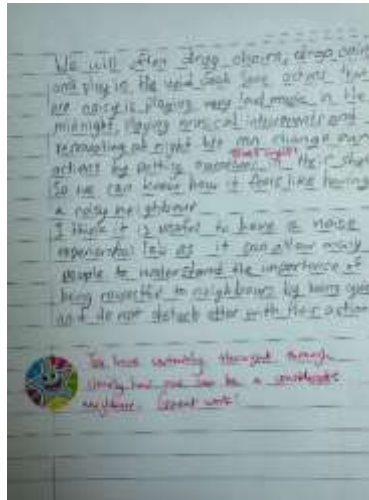 We will often drag chairs, drop coins
and play in the void deck. Some actions that
are noisy is playing very loud music in the
midnight, playing musical instruments and
renovating at night. We can change our
actions by putting ourselves in their shoes
So we can know how it feels like having
a noisy neighbour
I think it is useful to have a noise
law as it can allow many
people to understand the importance of
being respectful to neighbours by being quiet
and do not disturb other with their action
You have certainly thought through
how one can be a considerate
neighbour. Great work!